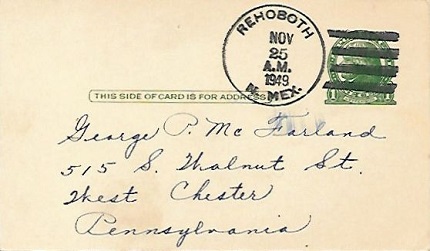 REHOBOTH
NOV
25
A.M.
1949
N. MEX.
THIS SIDE OF CARD IS FOR ADDRESS
George P. Mc Farland
515 S. Walnut St.
West Chester
Pennsylvania